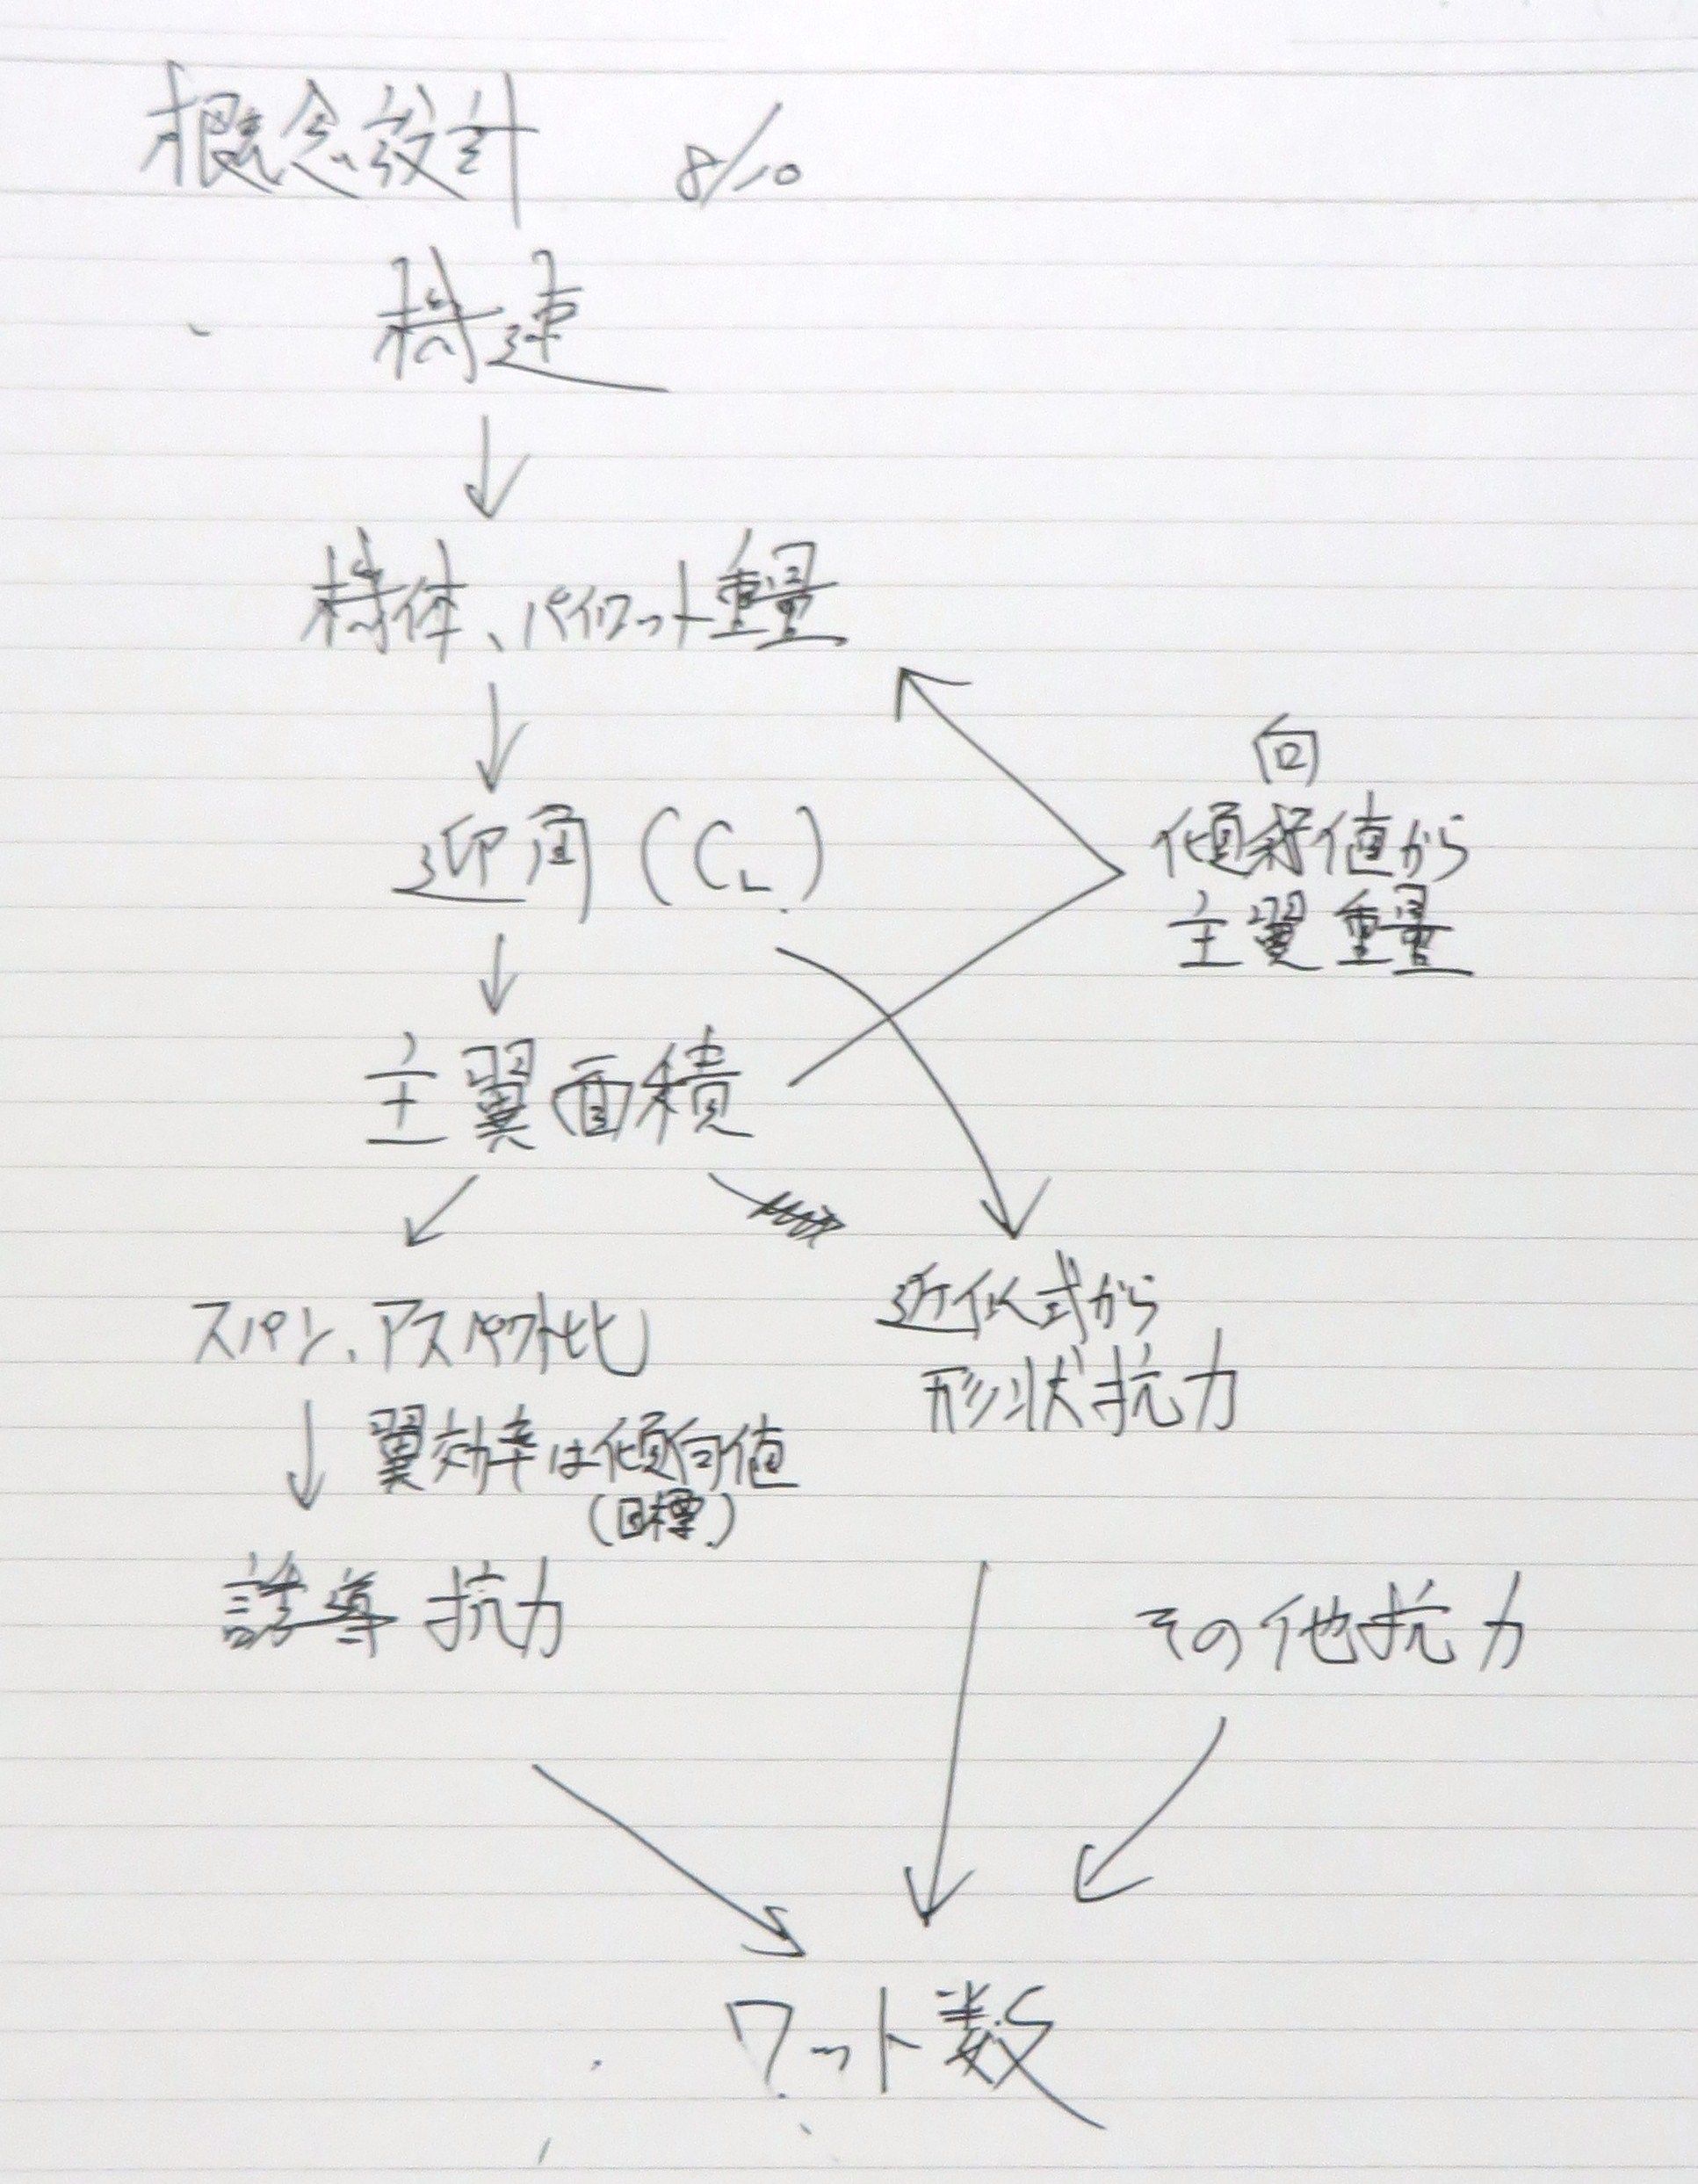 概念設計 8/10
機速
機体、パイロット重量
向
傾斜値から
主翼重量
迎角(CL)
主翼面積
スパン、アスペクト比
近似式から
形状抗力
翼効率は傾向値
(目標)
誘導抗力
その他抗力
ワット数